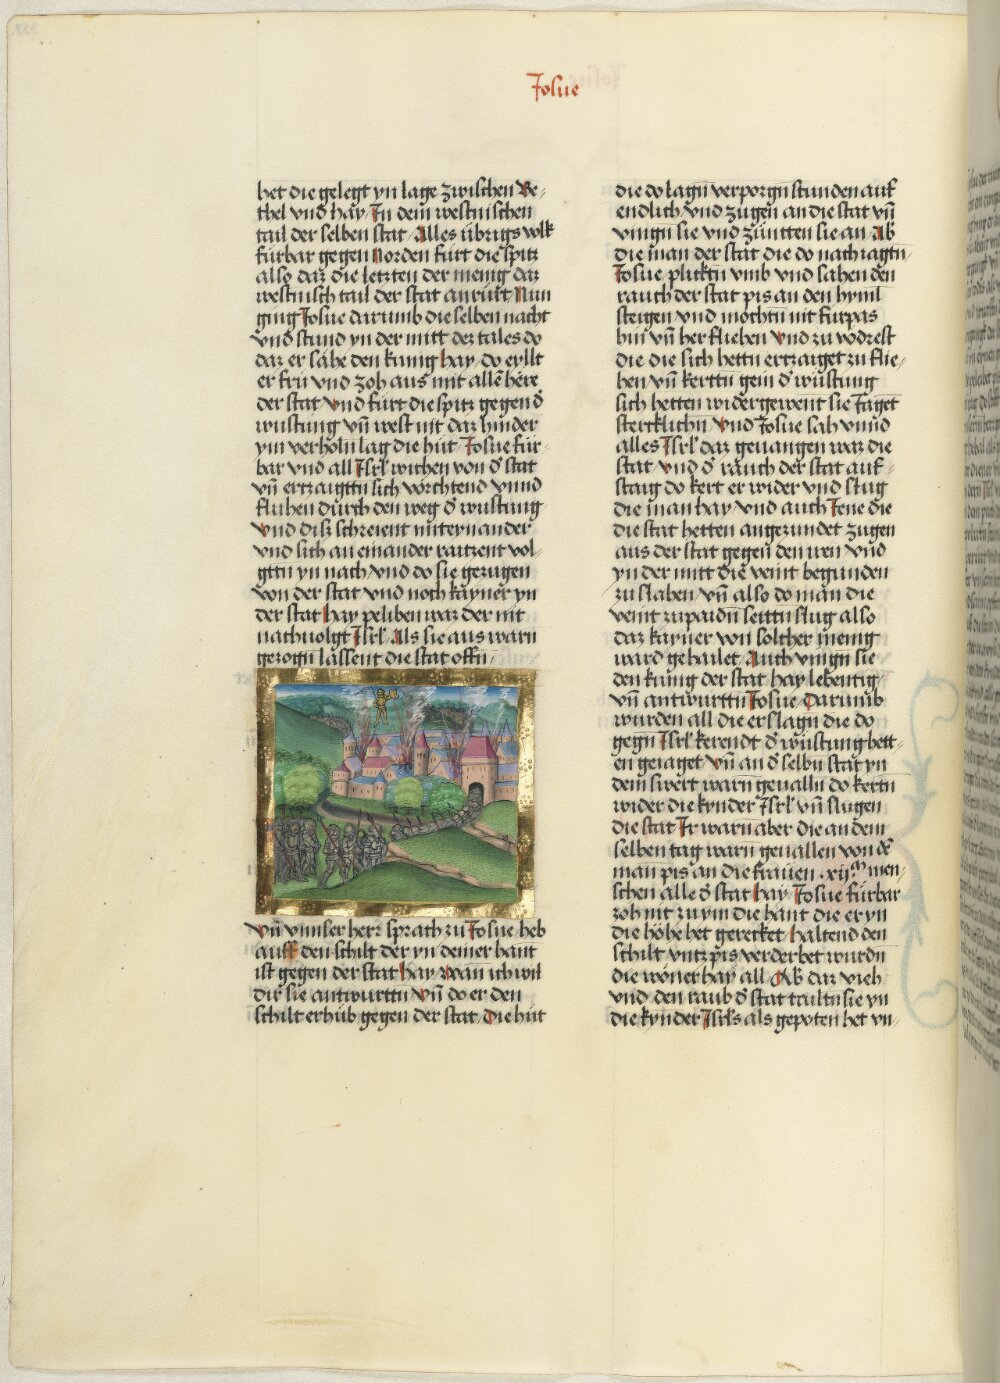 Josue
het die gelegt yn lage zwischen Be-
thel vnd hay / Jn dem westnischen
tail der selben stat / Alles übrigs volk
fürbar gegen Norden fürt die spitz
also daz die letzten der menig daz
westnisch tail der stat anrürt / Nun
ging Josue darumb die selben nacht
vnd stund yn der mitt der tales do
daz er sahe den kunig hay / do eyllt
er frü vnd zoh aus mit allē hēre
der stat / vnd fürt die spitz gegen d̄
wüstung vn̄ west nit daz hinder
ym verholn lag die hüt / Josue für-
bar vnd all Jsrl̄ wichen von d̄ stat
vn̄ ertzaigttn sich vörchtend vnnd
fluhen durch den weg d̄ wüstung
vnd disz schreient miteynander
vnd sich an einander raitzent vol-
gttn yn nach / vnd do sie gezugen
von der stat vnd noch kayner yn
der stat hay peliben waz der nit
nachuolgt Jsrl̄ / Als sie aus warn
gezogn lassent die stat offn /
vn̄ vnnser herr sprach zu Josue heb
auff den schilt der yn deiner hant
ist gegen der stat hay / wan ich wil
dir sie antwurttn / vn̄ do er den
schilt erhüb gegen der stat / Die hüt
die do lagn̄ verporgn̄ stunden auf
endlich / vnd zugen an die stat vn̄
viengn sie vnd züntten sie an / Als
die man der stat die do nachiagtn /
Josue plicktn vmb vnd sahen den
rauch der stat pis an den hyml
steigen vnd mochtn nit fürpas
hin vn̄ her fliehen / vnd zu vödrest
die die sich hettn ertzaiget zu flie-
hen vn̄ kerttn gein d̄ wüstung
sich hetten widergewent sie faget
stercklichn / vnd Josue sah vnnd
alles Jsrl̄ daz geuangen waz die
stat / vnd d̄ rauch der stat auf-
staig do kert er wider vnd slug
die man hay / vnd auch Jene die
die stat hetten angezundet zugen
aus der stat gegen den iren vnd
yn der mitt die veint begunden
zu slahen / vn̄ also do man die
veint zu paidn̄ seittn slug also
daz kayner von solcher menig
ward gehailet / Auch viengn sie
den kunig der stat hay lebentig
vn̄ antwurttn Josue / Darumb
wurden all die erslagn die do
gegn Jsrl̄ kerendt d̄ wüstung hett-
en geiaget / vn̄ an d̄ selbn̄ stat yn
dem swert warn geualln̄ do kertn
wider die kynder Jsrl̄ vn̄ slugen
die stat / Jr warn aber die an dem
selben tag warn geuallen von dē
man pis an die frauen / xijᵐ men-
schen alle d̄ stat hay / Josue fürbar
zoh nit zu ym die hant die er yn
die höhe het gerecket / haltend den
schilt vntz pis verderbet wurdn̄
die wöner hay all / Als daz vieh
vnd den raub d̄ stat tailtn sie yn
die kynder Jsrl̄s als gepoten het vn-